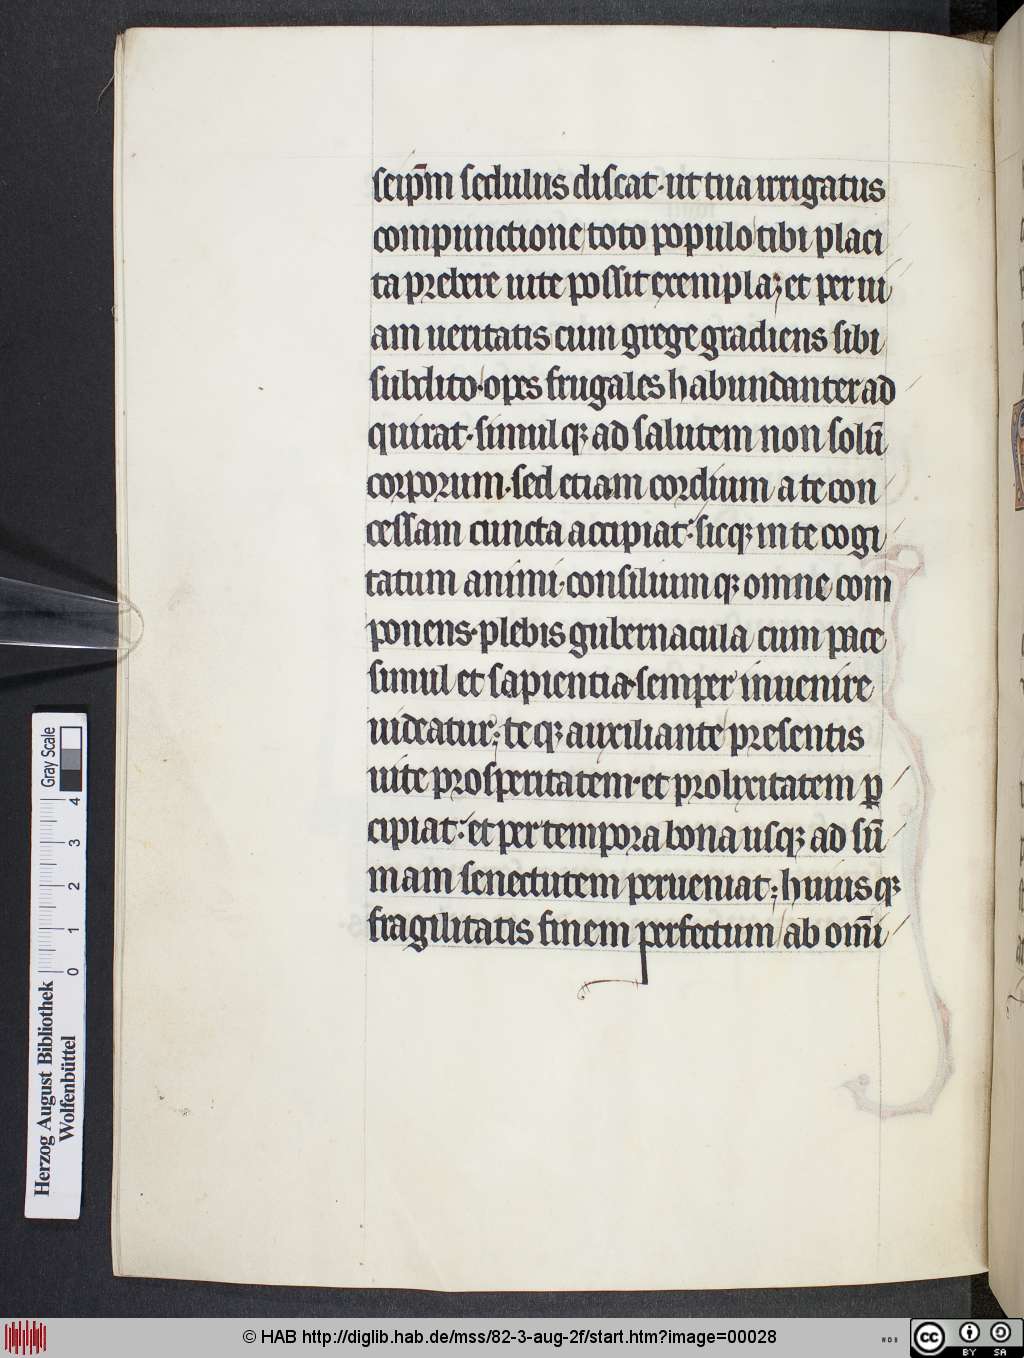 seip̄m sedulus discat · ut tua irrigatus
compunctione toto populo tibi placi
ta prebere uite possit exempla; et per ui
am ueritatis cum grege gradiens sibi
subdito · opes frugales habundanter ad
quirat · simul qꝫ ad salutem non solū
corporum · sed etiam cordium a te con
cessam cuncta accipiat · sicqꝫ in te cogi
tatum animi · consilium qꝫ omne com
ponens · plebis gubernacula cum pace
simul et sapientia semper inuenire
uideatur; te qꝫ auxiliante presentis
uite prosperitatem · et prolixitatem ꝑ
cipiat · et per tempora bona usqꝫ ad sū
mam senectutem perueniat; huius qꝫ
fragilitatis finem perfectum ab om̄i
Gray Scale
0 1 2 3 4
Herzog August Bibliothek
Wolfenbüttel
© HAB http://diglib.hab.de/mss/82-3-aug-2f/start.htm?image=00028
WDB
cc BY SA